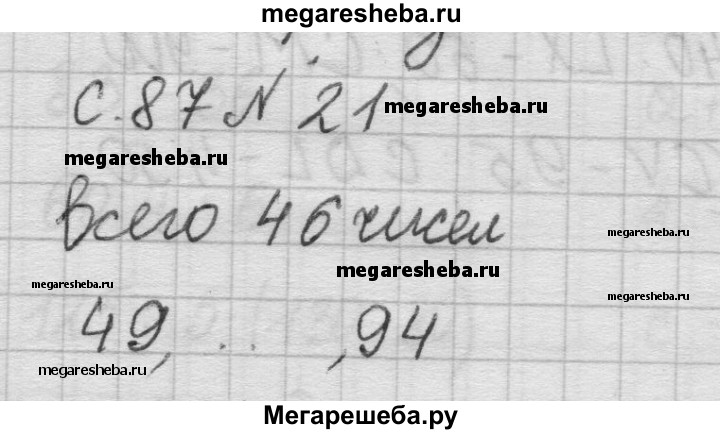 megaresheba.ru
с. 87 N 21 megaresheba.ru
megaresheba.ru
всего 46 чисел megaresheba.ru
megaresheba.ru
megaresheba.ru
megaresheba.ru
49, .. ,94
megaresheba.ru
Мегарешеба.ру